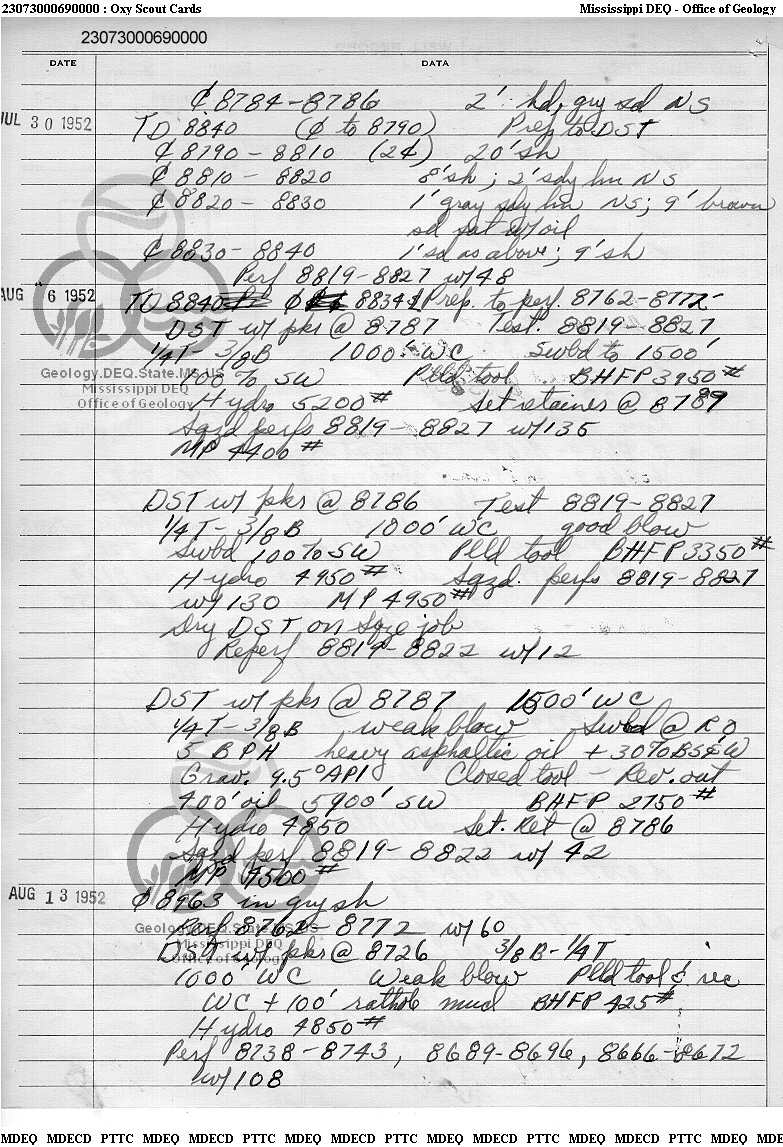 23073000690000 : Oxy Scout Cards Mississippi DEQ - Office of Geology
23073000690000
DATE DATA
₵ 8784-8786 2' hd, gry sd NS
JUL 30 1952 TD 8840 (₵ to 8790) Prep to DST
₵ 8790-8810 (2₵) 20' sh
₵ 8810-8820 8' sh; 2' sdy lm NS
₵ 8820-8830 1' gray sdy lm NS; 9' brown
sd sat w/oil
₵ 8830-8840 1' sd as above; 9' sh
Perf 8819-8827 w/48
AUG 6 1952 TD 8840 Prep. to perf. 8762-8772
DST w/ pkrs @ 8787 Test. 8819-8827
1/4T-3/8B 1000' WC Swbd to 1500'
100% SW Plld tool BHFP 3950#
Geology.DEQ.State.MS.US
Mississippi DEQ
Office of Geology
Hydro 5200# Set retainer @ 8789
Sqzd perfs 8819-8827 w/135
MP 4400#
DST w/ pkrs @ 8786 Test 8819-8827
1/4T-3/8B 1000' WC good blow
Swbd 100% SW Plld tool BHFP 3350#
Hydro 4950# Sqzd. perfs 8819-8827
w/130 MP 4950#
Dry DST on sqze job
Reperf 8819-8822 w/12
DST w/ pkrs @ 8787 1500' WC
1/4T-3/8B weak blow Swbd @ RO
5 BPH heavy asphaltic oil + 30% BS&W
Grav. 9.5° API Closed tool - Rev. out
400' oil 5900' SW BHFP 2750#
Hydro 4850 Set. Ret @ 8786
Sqzd perf 8819-8822 w/ 42
MP 4500#
AUG 13 1952 ₵ 8963 in gry sh
Geology.DEQ.State.MS.US
Perf 8762-8772 w/60
Mississippi DEQ
Office of Geology
DST w/ pkrs @ 8726 3/8B-1/4T
1000' WC Weak blow Plld tool & rec
WC + 100' rathole mud BHFP 425#
Hydro 4850#
Perf 8738-8743, 8689-8696, 8666-8672
w/108
MDEQ MDECD PTTC MDEQ MDECD PTTC MDEQ MDECD PTTC MDEQ MDECD PTTC MDEQ MDECD PTTC MDEQ MDE